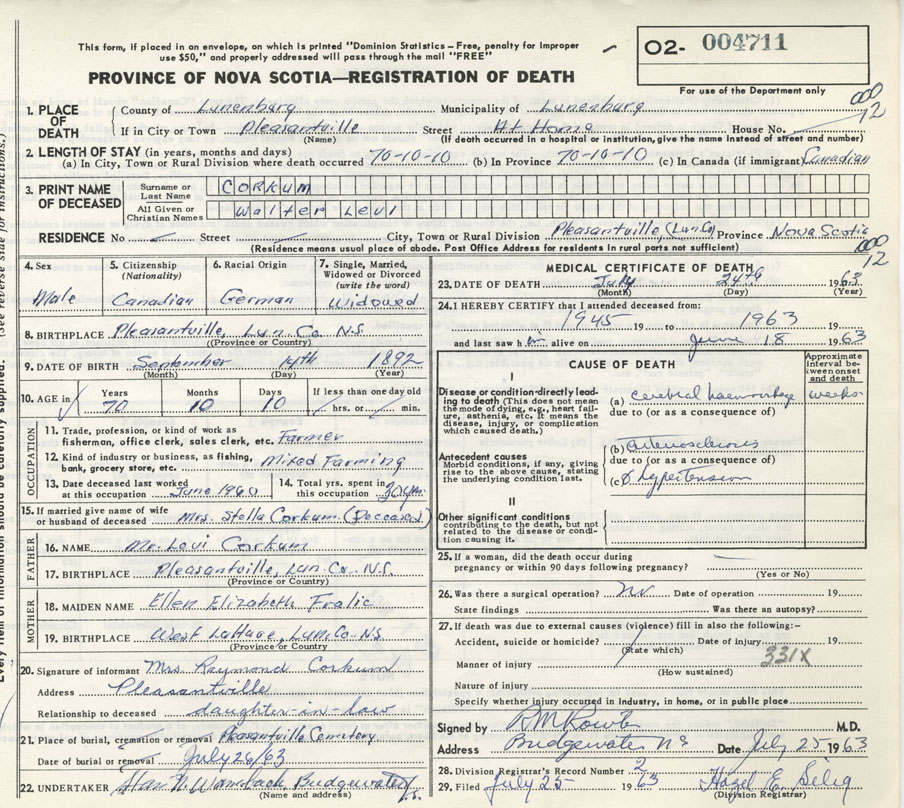 This form, if placed in an envelope, on which is printed "Dominion Statistics – Free, penalty for improper
use $50," and properly addressed will pass through the mail "FREE"
PROVINCE OF NOVA SCOTIA—REGISTRATION OF DEATH
O2- 004711
For use of the Department only
000
12
1. PLACE OF DEATH
County of Lunenburg Municipality of Lunenburg
If in City or Town Pleasantville Street At Home House No.
(Name) (If death occurred in a hospital or institution, give the name instead of street and number)
2. LENGTH OF STAY (in years, months and days)
(a) In City, Town or Rural Division where death occurred 70-10-10 (b) In Province 70-10-10 (c) In Canada (if immigrant) Canadian
3. PRINT NAME OF DECEASED
Surname or Last Name CORKUM
All Given or Christian Names Walter Levi
RESIDENCE No Street City, Town or Rural Division Pleasantville (Lun Co) Province Nova Scotia
(Residence means usual place of abode. Post Office Address for residents in rural parts not sufficient)
000
12
4. Sex
Male
5. Citizenship (Nationality)
Canadian
6. Racial Origin
German
7. Single, Married, Widowed or Divorced (write the word)
Widowed
8. BIRTHPLACE Pleasantville, Lun. Co. N.S.
(Province or Country)
9. DATE OF BIRTH September 14th 1892
(Month) (Day) (Year)
10. AGE in
Years Months Days If less than one day old
70 10 10 hrs. or min.
OCCUPATION
11. Trade, profession, or kind of work as
fisherman, office clerk, sales clerk, etc. Farmer
12. Kind of industry or business, as fishing,
bank, grocery store, etc. Mixed Farming
13. Date deceased last worked
at this occupation June 1960
14. Total yrs. spent in
this occupation
15. If married give name of wife
or husband of deceased Mrs. Stella Corkum (Deceased)
FATHER
16. NAME Mr. Levi Corkum
17. BIRTHPLACE Pleasantville, Lun. Co. N.S.
(Province or Country)
MOTHER
18. MAIDEN NAME Ellen Elizabeth Fralic
19. BIRTHPLACE West LaHave, Lun. Co. N.S.
(Province or Country)
20. Signature of informant Mrs. Raymond Corkum
Address Pleasantville
Relationship to deceased daughter-in-law
21. Place of burial, cremation or removal Pleasantville Cemetery
Date of burial or removal July 26/63
22. UNDERTAKER Bridgewater
(Name and address)
MEDICAL CERTIFICATE OF DEATH
23. DATE OF DEATH July 24th 1963
(Month) (Day) (Year)
24. I HEREBY CERTIFY that I attended deceased from:
1945 19 to 1963 19
and last saw h im alive on June 18 1963
CAUSE OF DEATH
Approximate interval between onset and death
I
Disease or condition directly leading to death (This does not mean the mode of dying, e.g., heart failure, asthenia, etc. It means the disease, injury, or complication which caused death.)
(a) cerebral haemorrhage weeks
due to (or as a consequence of)
Antecedent causes
Morbid conditions, if any, giving rise to the above cause, stating the underlying condition last.
(b) arteriosclerosis
due to (or as a consequence of)
(c) hypertension
II
Other significant conditions
contributing to the death, but not related to the disease or condition causing it.
25. If a woman, did the death occur during
pregnancy or within 90 days following pregnancy?
(Yes or No)
26. Was there a surgical operation? no Date of operation 19
State findings Was there an autopsy?
27. If death was due to external causes (violence) fill in also the following:–
Accident, suicide or homicide? Date of injury 19
(State which)
331X
Manner of injury
(How sustained)
Nature of injury
Specify whether injury occurred in industry, in home, or in public place
Signed by M.D.
Address Bridgewater NS Date July 25 1963
28. Division Registrar's Record Number 2
29. Filed July 25 1963 Hazel E. Selig
(Division Registrar)
(See reverse side for instructions.)